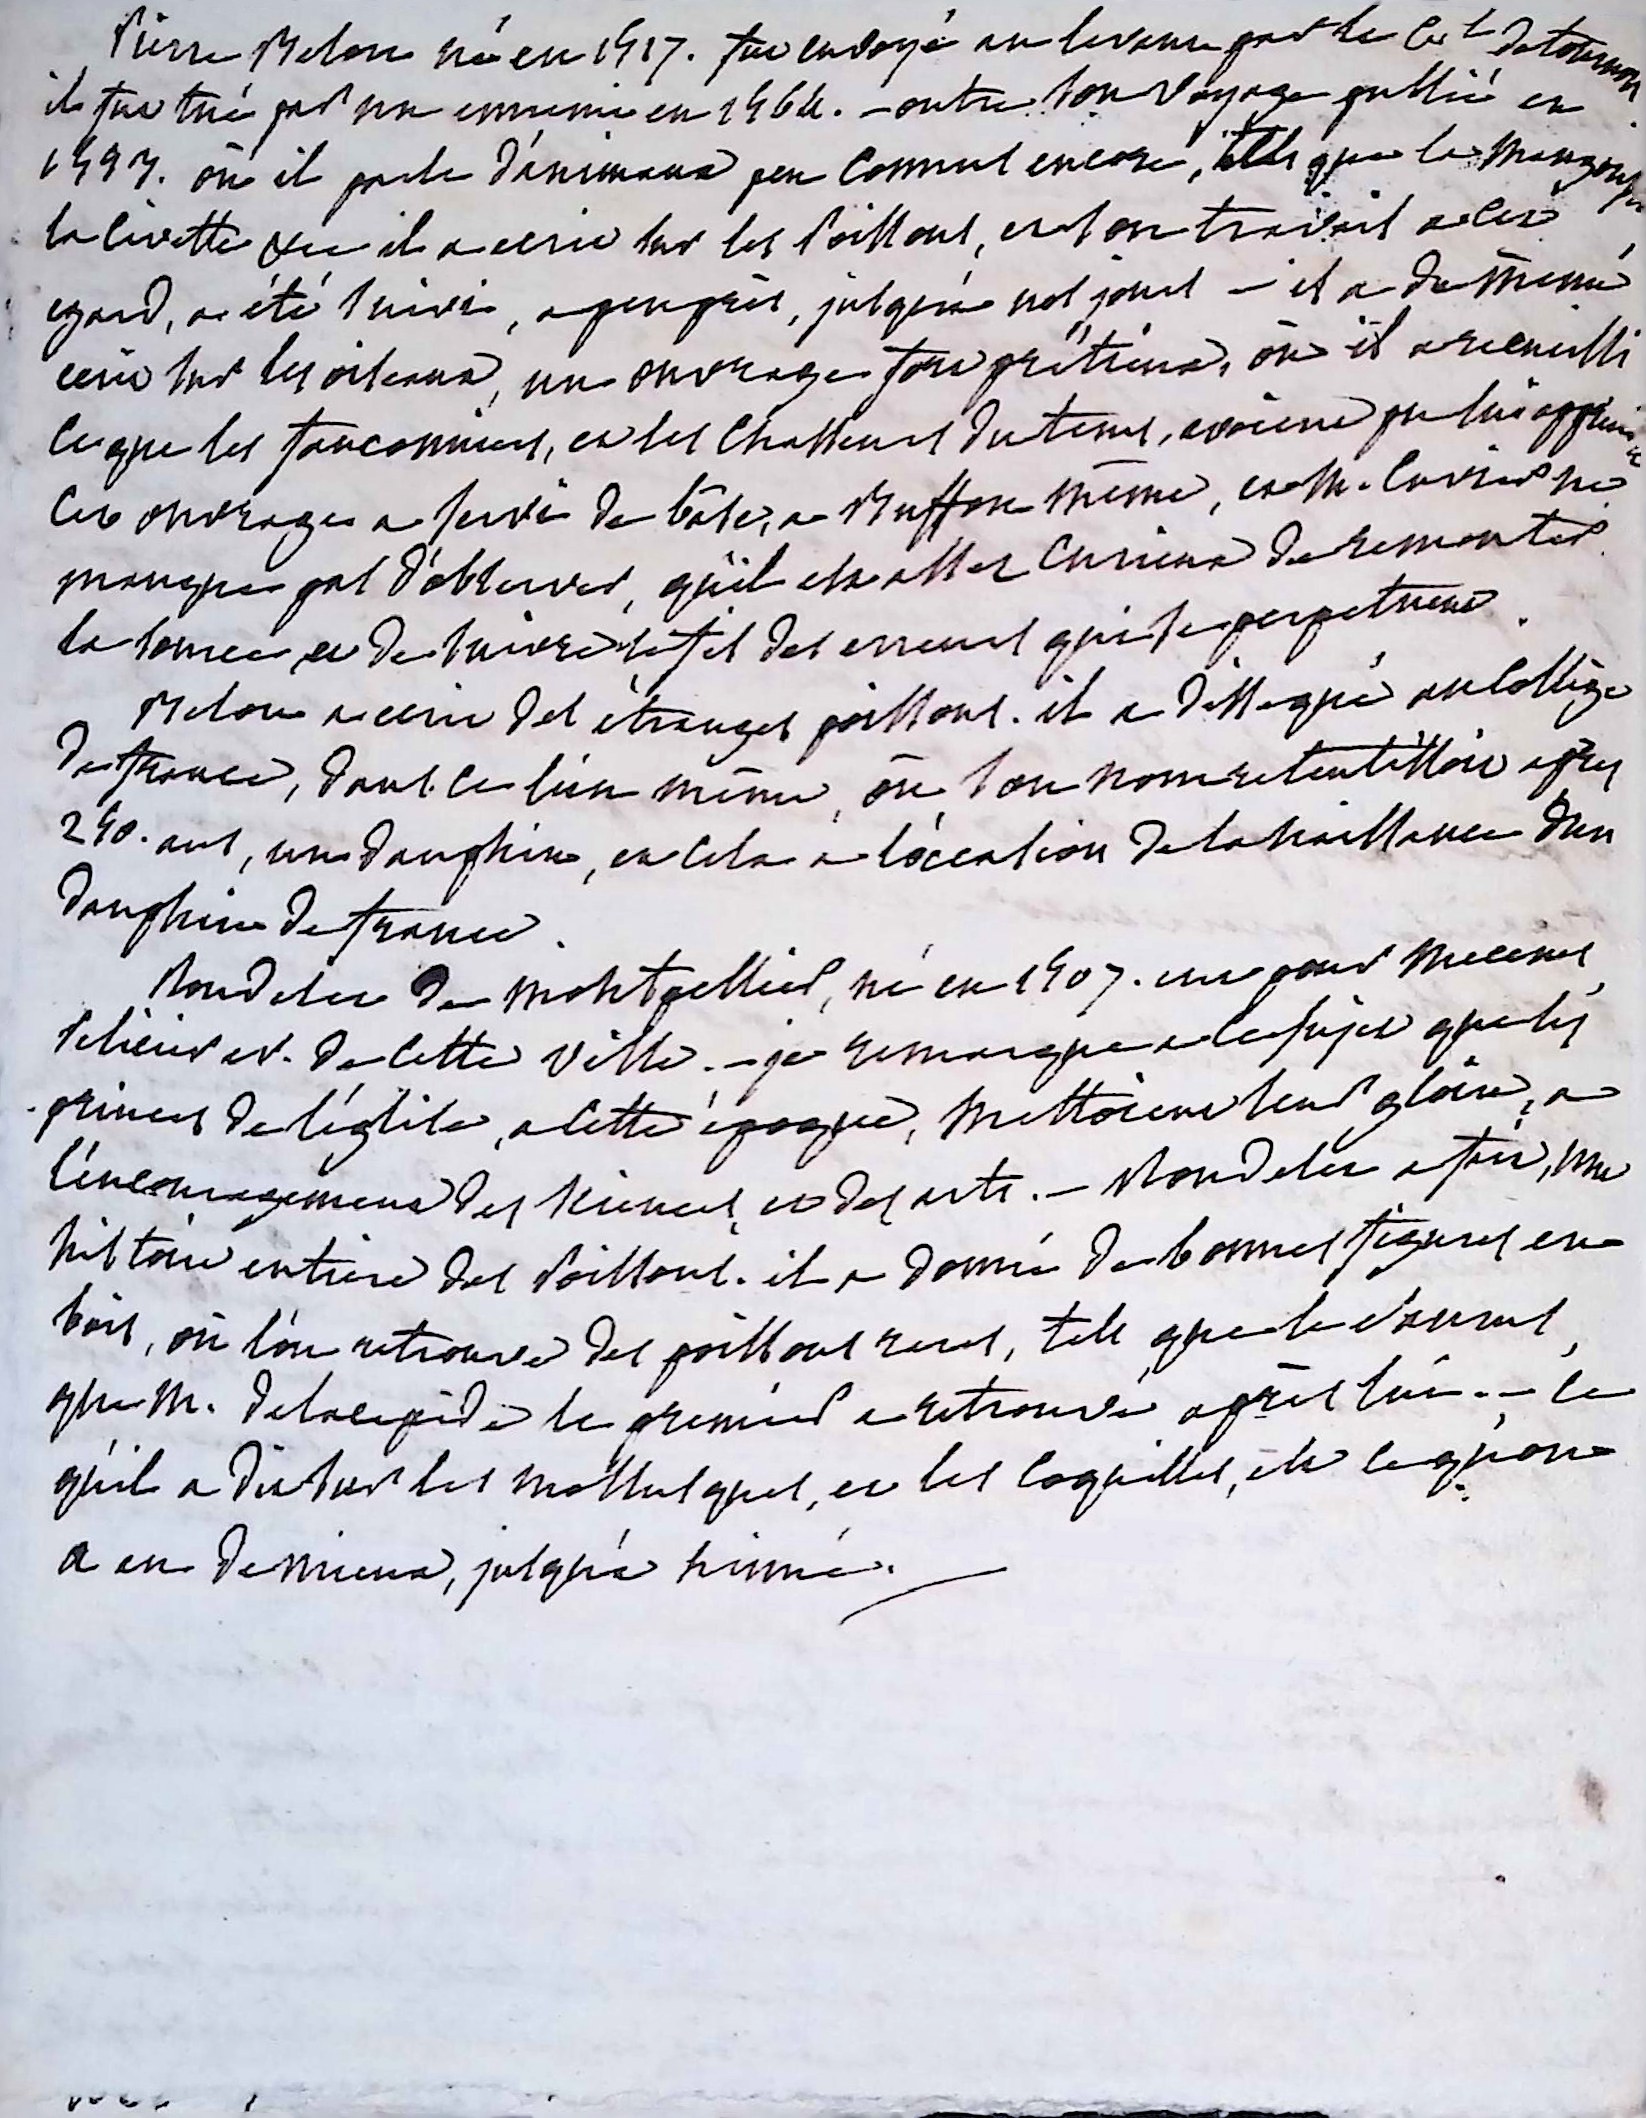 Pierre Belon né en 1517. fut envoyé au levant par le Cal de tournon
il fut tué par un ennemi en 1564. – outre son voyage publié en
1553. où il parle d'animaux peu connus encore, tels que la mangouste
la civette &c il a écrit sur les poissons, et son travail a cet
egard, a été suivi, a peu près, jusqu'à nos jours – il a de même
écrit sur les oiseaux, un ouvrage fort prétieux, où il a recueilli
ce que les fauconniers, et les chasseurs du tems, avoient pu lui apprendre
cet ouvrage a servi de base, a Buffon même, et M. Cuvier ne
manque pas d'observer, qu'il est assez curieux de remonter
la source et de suivre le fil des erreurs qui se perpetuent.
Belon a écrit des étranges poissons. il a disséqué au Collège
de france, dans ce lieu même, où son nom retentissoit après
250. ans, un dauphin, et cela a l'occasion de la naissance d'un
dauphin de france.
Rondelet de Montpellier, né en 1507. eut pour mecenes
Pelicier ev. de cette ville. – je remarque a ce sujet que les
princes de l'église, a cette époque, mettoient leur gloire, a
l'encouragement des sciences, et des arts. – Rondelet a fait, une
histoire entiere des poissons. il a donné de bonnes figures en
bois, où l'on retrouve des poissons rares, tels que le
que M. de lacepède le premier a retrouvé après lui. – ce
qu'il a dit sur les mollusques, et les coquilles, est ce qu'on
a eu de mieux, jusqu'à Linné.